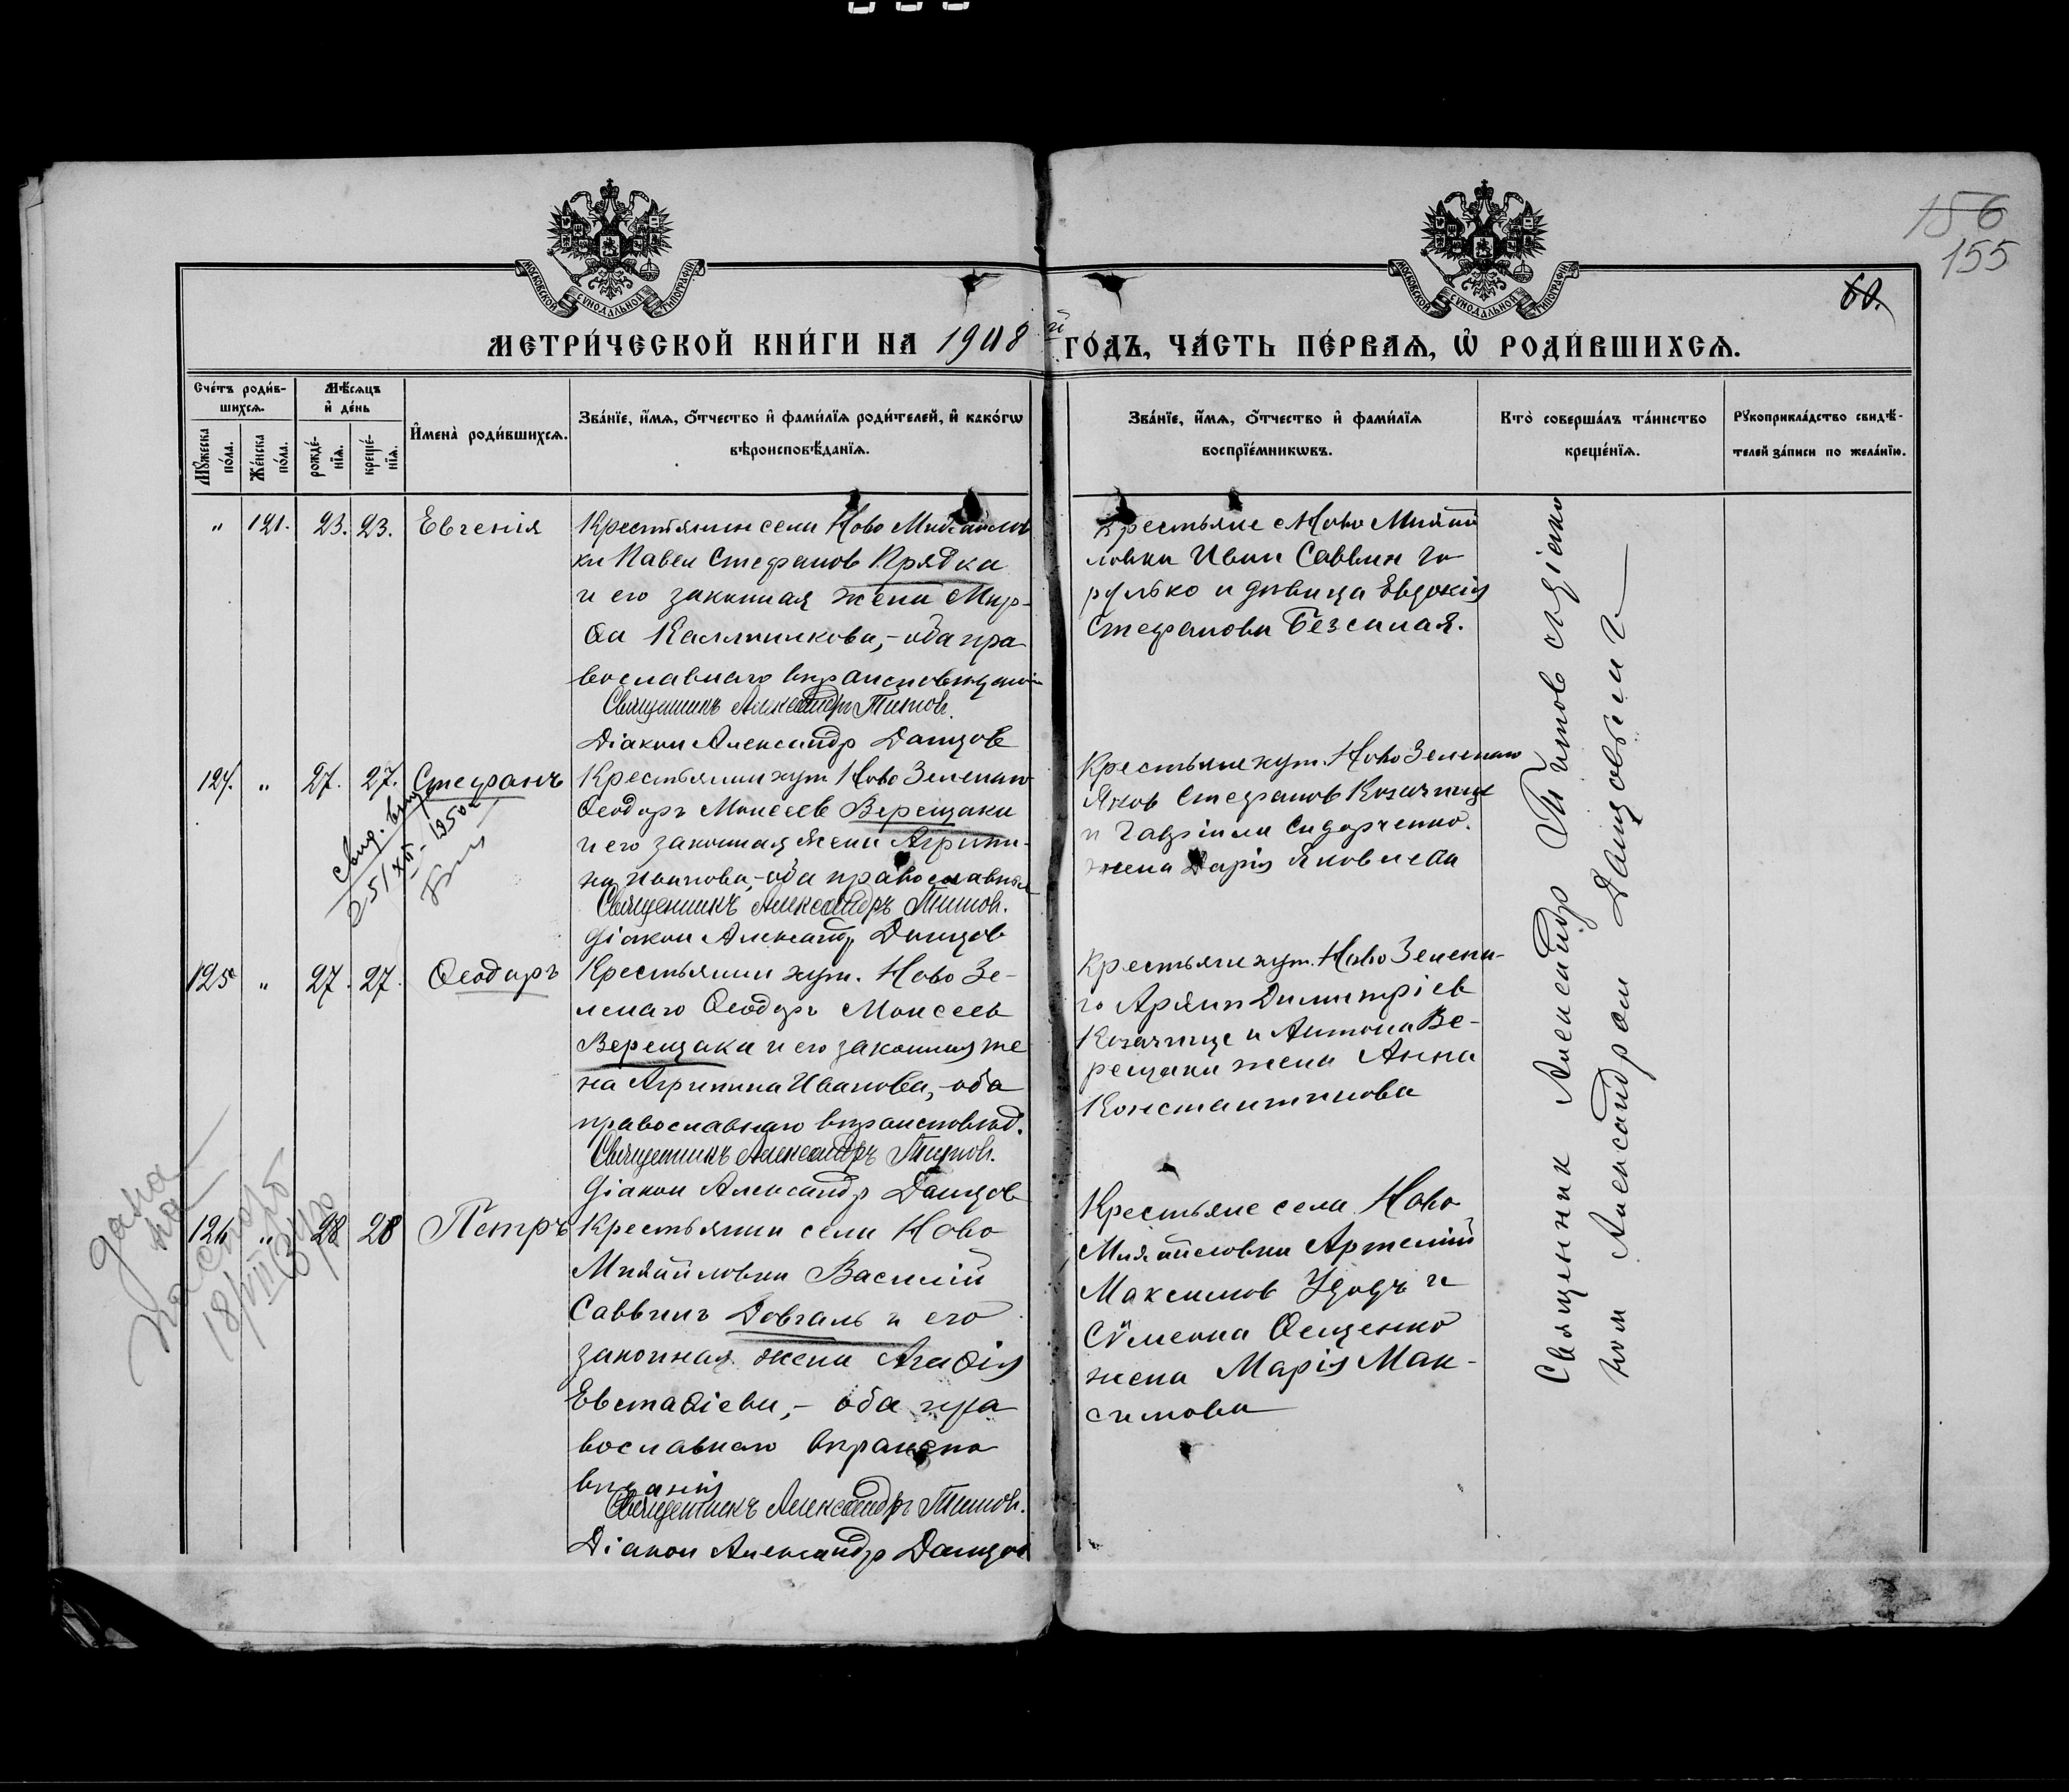 156
155
60.
МОСКОВСКОЙ СѴНОДАЛЬНОЙ ТИПОГРАФІИ
МОСКОВСКОЙ СѴНОДАЛЬНОЙ ТИПОГРАФІИ
МЕТРИ́ЧЕСКОЙ КНИ́ГИ НА 1908 й ГО́ДЪ, ЧА́СТЬ ПЕ́РВАЯ, Ѡ҆ РОДИ́ВШИХСЯ.
Сче́тъ роди́в-
шихся.
Мѣ́сяцъ
и҆ де́нь
Мꙋ́жеска по́ла.
Же́нска по́ла.
рожде́-нїѧ.
креще́-нїѧ.
И҆мена̀ роди́вшихся.
Зва́нїе, и҆́мѧ, ѻ҆́тчество и҆ фами́лїѧ роди́телей, и҆ како́гѡ
вѣроисповѣ́данїѧ.
Зва́нїе, и҆́мѧ, ѻ҆́тчество и҆ фами́лїѧ
воспрїе́мникѡвъ.
Кто̀ соверша́лъ та́инство
креще́нїѧ.
Рꙋкоприкла́дство свидѣ́-
телей за́писи по жела́нїю.
" 121. 23. 23. Евгенія
Крестьянин села Ново Михайлов
ки Павел Стефанов Прядка
и его законная жена Мар-
ѳа Каллиникова, - оба пра
вославнаго вѣроисповѣданія
Священникъ Александръ Титов.
Діакон Александр Данцов
Крестьяне Ново Михай
ловки Иван Саввин Го
рулько и дѣвица Евдокія
Стефанова Безсалая.
124. " 27. 27. Стефанъ
Крестьянин хут. Ново Зеленаго
Ѳеодоръ Моисеев Верещака
и его законная жена Агрипи-
на Иванова, - оба православныя
Священникъ Александръ Титов.
Діакон Александр Данцов
Крестьяне хут. Ново Зеленаго
Яков Стефанов Козачище
и Гавріила Сидорченко
жена Дарія Яковлева
125 " 27. 27. Ѳеодоръ
Крестьянин хут. Ново Зе-
ленаго Ѳеодоръ Моисеев
Верещака и его законная же
на Агрипина Иванова, - оба
православнаго вѣроисповѣд.
Священникъ Александръ Титов.
Діакон Александр Данцов
Крестьяне хут. Ново Зелена-
го Димитріев
Козачище и Антона Ве-
рещаки жена Анна
Константинова
дана
на
18/VII
" 28 28 Петръ
Крестьянин села Ново
Михайловки Василій
Саввин Довгаль и его
законная жена Агаѳія
Евстаѳіева, - оба пра
вославнаго вѣроиспо
вѣданія
Священникъ Александръ Титов.
Діакон Александр Данцов
Крестьяне села Ново
Михайловки Артемій
Максимов Удодъ и
Сѵмеона Ѳещенко
жена Марія Мак-
симова
Священник Александр Титов с діако
ном Александром Данцовым